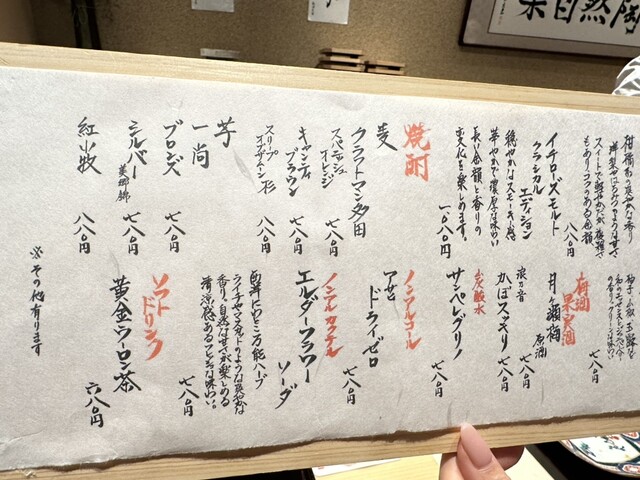 柑橘系の爽やかな香り
洋梨やはちみつのようなすべて
スイートで軽やかだが複雑さ
もありコクのある余韻
八八〇円
イチローズモルト
クラシカル エディション
穏やかなスモーキー感
華やかで濃厚な味わい
長い余韻と香りの
変化を楽しめます。
一、〇八〇円
焼酎
麦
クラフトマン多田
スパニッシュ
オレンジ
七八〇円
キャンティ
ブラウン
七八〇円
スリープ
杉
八八〇円
芋
一尚
ブロンズ
七八〇円
シルバー
美郷錦
七八〇円
紅小牧
八八〇円
梅酒
果実酒
七八〇円
月ヶ瀬梅
原酒
七八〇円
浪乃音
かぼスッキリ
七八〇円
炭酸水
サンペレグリノ
七八〇円
ノンアルコール
アサヒ
ドライゼロ
七八〇円
ノンアルカクテル
エルダーフラワー
ソーダ
ライチやマスカットのような爽やかな
香り、自然な甘さが楽しめる
清涼感あるつと味わい。
七八〇円
ソフト
ドリンク
黄金ウーロン茶
六八〇円
※その他有ります